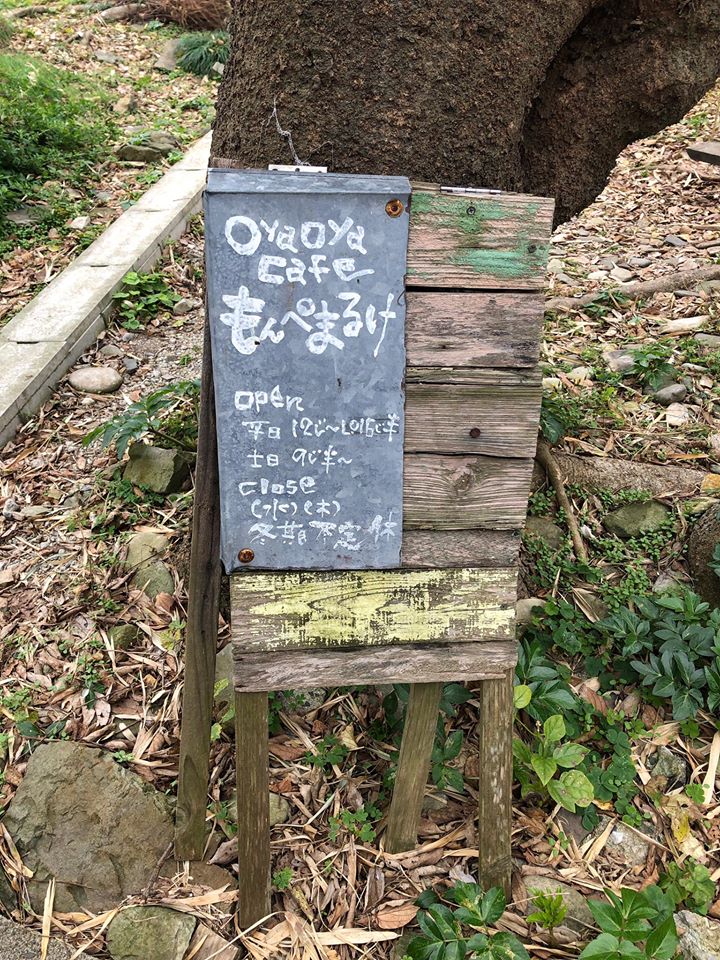 OyaOya
cafe
もんぺまるけ
open
平日 12じ～LO16じ半
土日 9じ半～
close
(水)(木)
冬期不定休